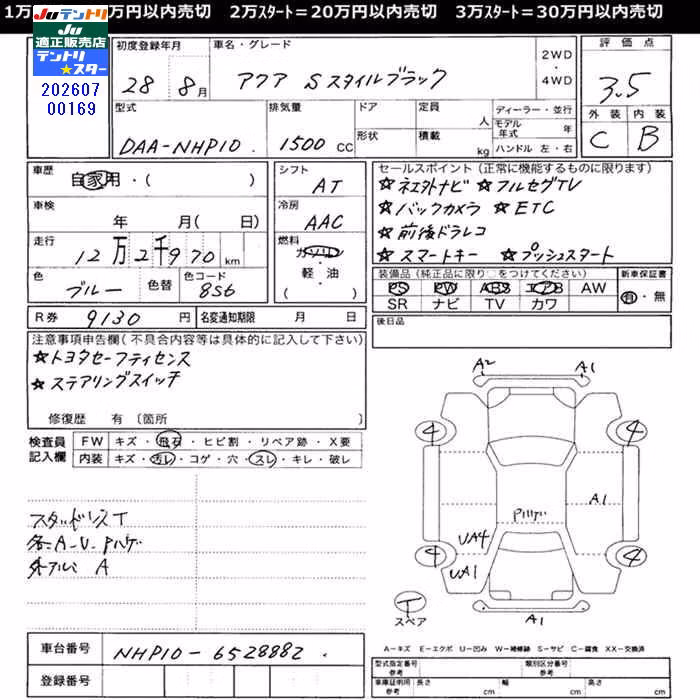 1万 万円以内売切 2万ｽﾀｰﾄ＝20万円以内売切 3万ｽﾀｰﾄ＝30万円以内売切
Juテントリ
Ju
適正販売店
テントリ
★スター
202607
00169
初度登録年月
28 8月
車名・グレード
アクア Sスタイルブラック
2WD
・
4WD
評価点
3.5
外装 内装
C B
型式
DAA-NHP10
排気量
1500 CC
ドア
形状
定員 人
積載 kg
ディーラー・並行
モデル年式 年
ハンドル 左・右
車歴
自家用・( )
車検
年 月( 日)
走行
12万2千970 km
色
ブルー
色替
色コード
8S6
シフト
AT
冷房
AAC
燃料
ガソリン
軽・油
( )
セールスポイント(正常に機能するものに限ります)
☆ネエタトナビ ☆フルセグTV
☆バックカメラ ☆ETC
☆前後ドラレコ
☆スマートキー ☆プッシュスタート
装備品(純正品に限り○をつけてください)
PS PW ABS エアB AW
SR ナビ TV カワ
新車保証書
有・無
R券 9130 円
名変通知期限 月 日
後日品
注意事項申告欄(不具合内容等は具体的に記入して下さい)
☆トヨタセーフティセンス
☆ステアリングスイッチ
修復歴 有 〔箇所 〕
検査員
記入欄
FW キズ・飛石・ヒビ割・リペア跡・X要
内装 キズ・汚レ・コゲ・穴・スレ・キレ・破レ
スタッドレスT
各A-U-Pハゲ
外アルミ A
A2
A1
4
4
A1
Pハゲ
UA4
4
4
UA1
A1
T
スペア
車台番号
NHP10-6528882
登録番号
A-キズ E-エクボ U-凹み W-補修跡 S-サビ C-腐食 XX-交換済
型式指定番号
参考
類別区分番号
参考
車庫証明用
参考
長さ cm
幅 cm
高さ cm